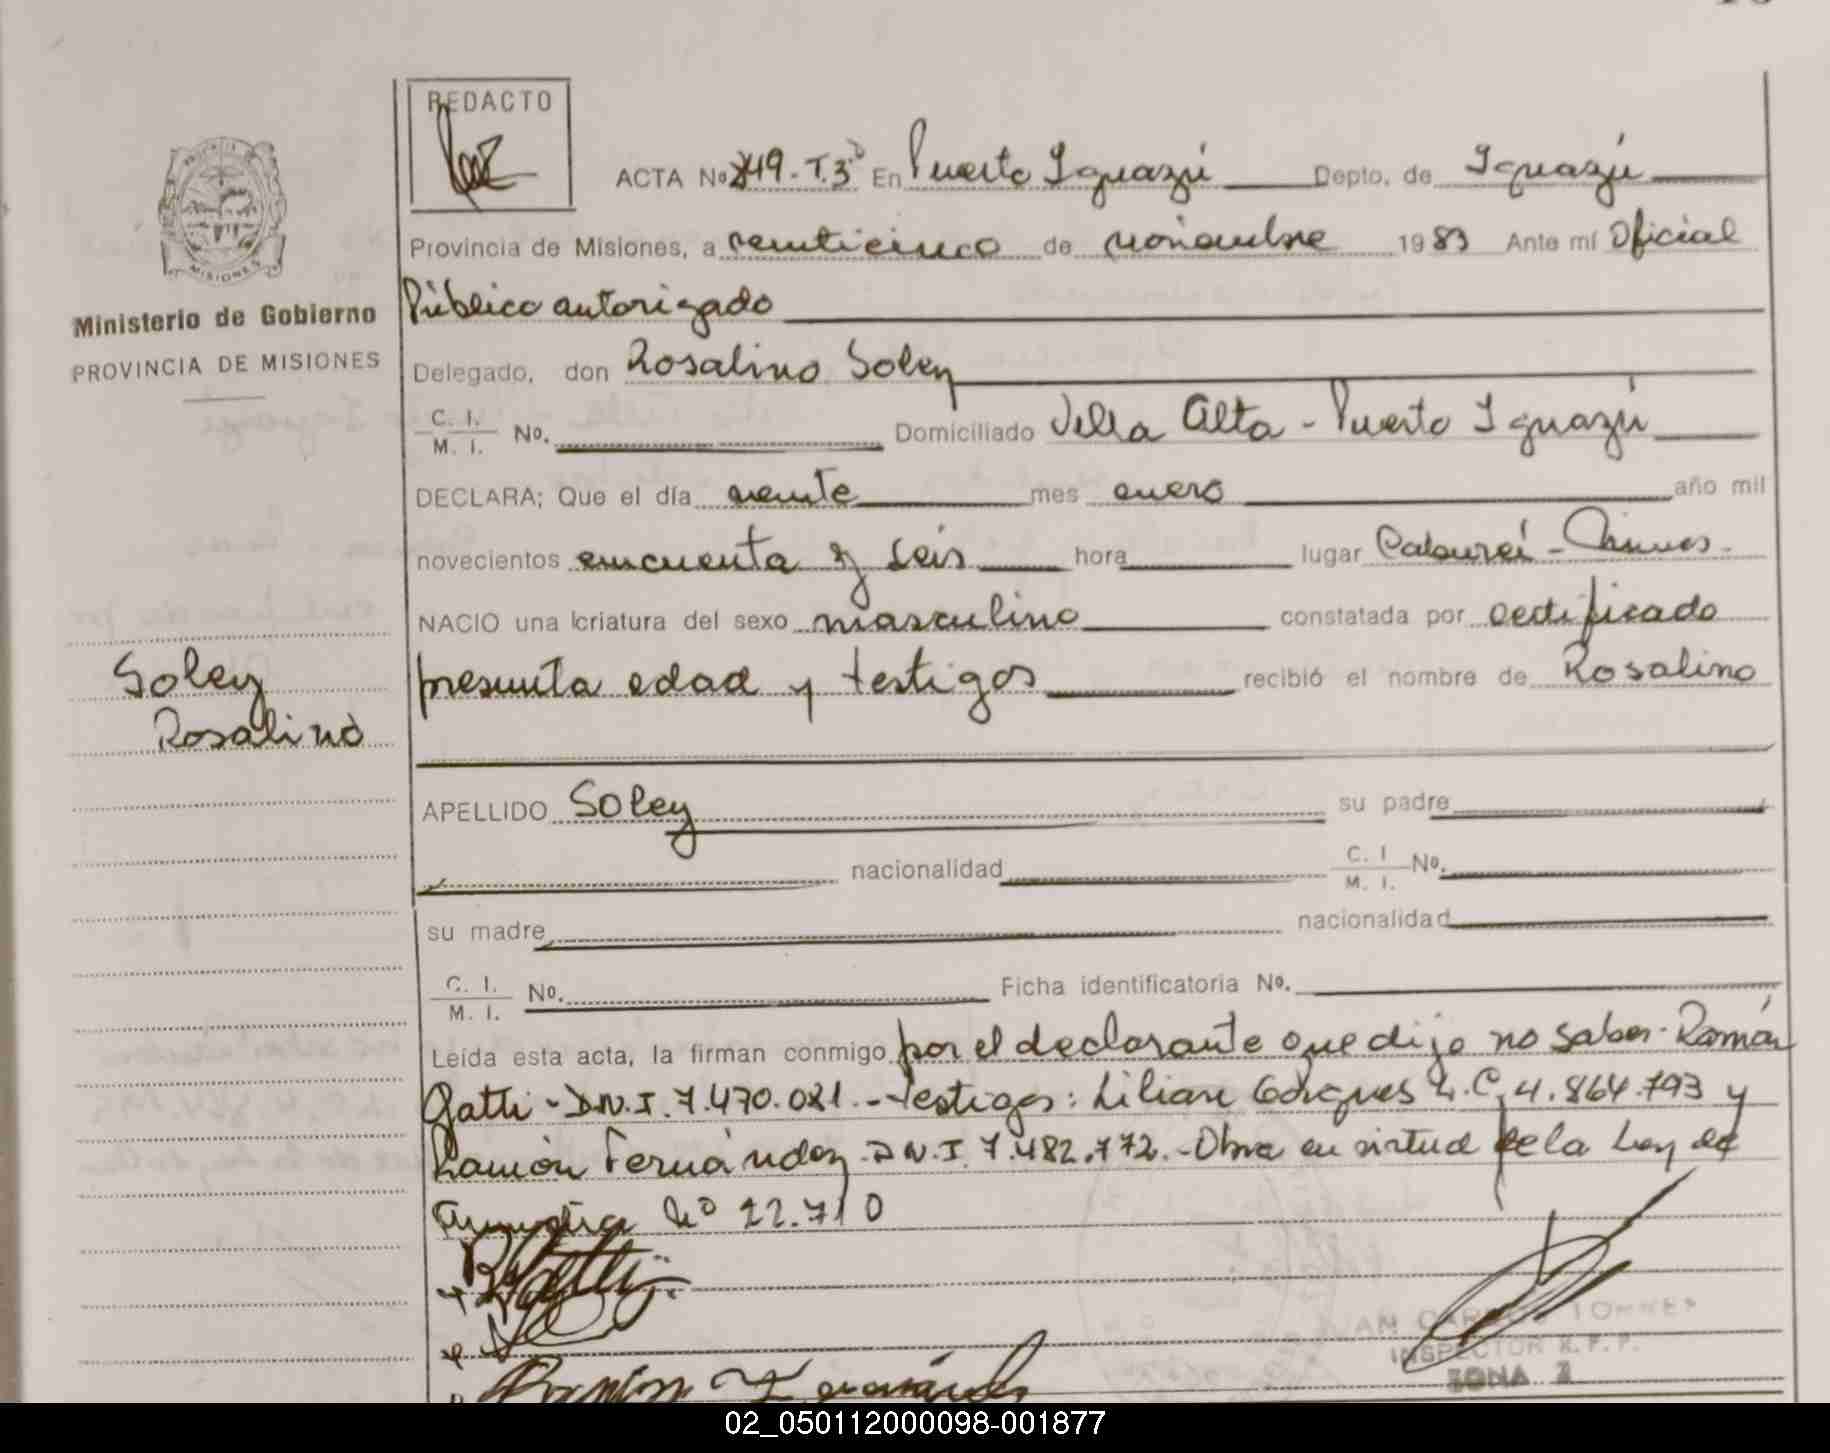 REDACTO
ACTA No 849 - T.3º En Puerto Iguazú Depto, de Iguazú
Provincia de Misiones, a veinticinco de noviembre 1983 Ante mí Oficial
Ministerio de Gobierno
PROVINCIA DE MISIONES
Público autorizado
Delegado, don Rosalino Soley
C. I.
M. I. No. Domiciliado Villa Alta - Puerto Iguazú
DECLARA; Que el día veinte mes enero año mil
novecientos cincuenta y seis hora lugar
NACIO una criatura del sexo masculino constatada por certificado
Soley
Rosalino
presunta edad y testigos recibió el nombre de Rosalino
APELLIDO Soley su padre
nacionalidad C. I. M. I. No.
su madre nacionalidad
C. I.
M. I. No. Ficha identificatoria No.
Leída esta acta, la firman conmigo por el declarante que dijo no saber - Ramón
Gatti - D.N.I. 7.470.021. - Testigos: Lilian L.C. 4.864.793 y
Ramón Fernández D.N.I. 7.482.772. - Obra en virtud de la Ley de
Amnistía Nº 22.710
INSPECTOR R.P.P.
ZONA
02_050112000098-001877